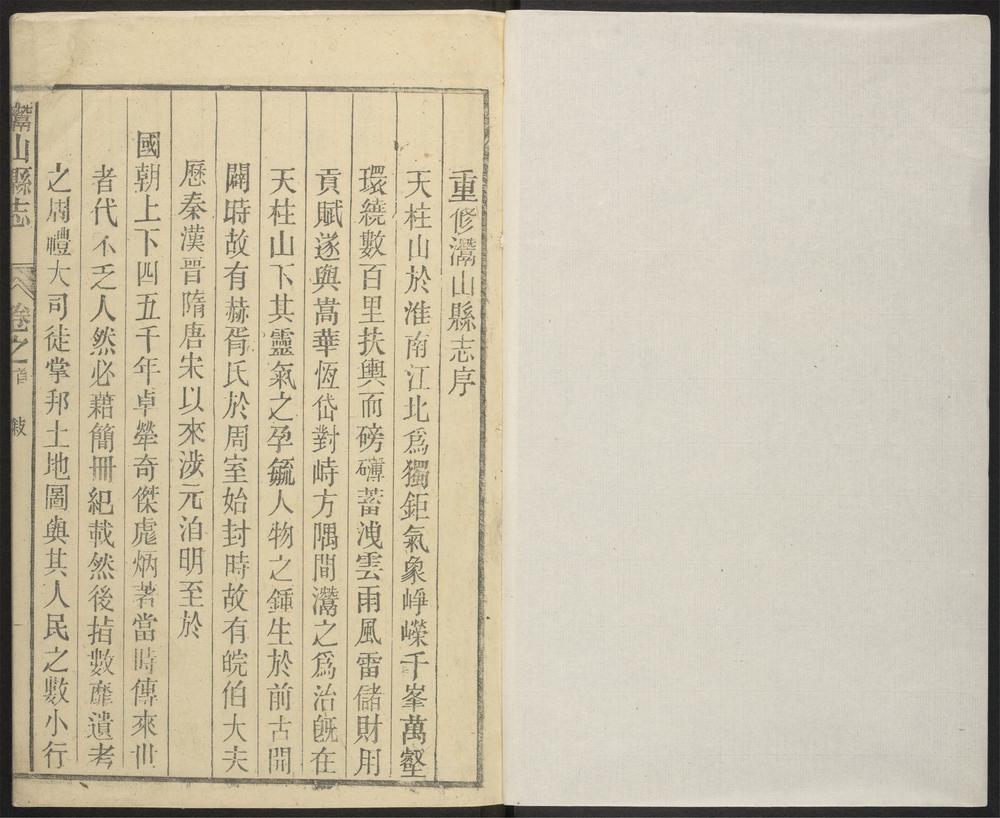 重修灊山縣志序
天柱山於淮南江北爲獨鉅氣象崢嶸千峯萬壑
環繞數百里扶輿而磅礴蓄洩雲雨風雷儲財用
貢賦遂與嵩華恆岱對峙方隅間灊之爲治旣在
天柱山下其靈氣之孕毓人物之鍾生於前古開
闢時故有赫胥氏於周室始封時故有皖伯大夫
歷秦漢晉隋唐宋以來涉元洎明至於
國朝上下四五千年卓犖奇傑彪炳著當時傳來世
者代不乏人然必藉簡冊紀載然後掿數靡遺考
之周禮大司徒掌邦土地圖與其人民之數小行
灊山縣志 卷之首 敍